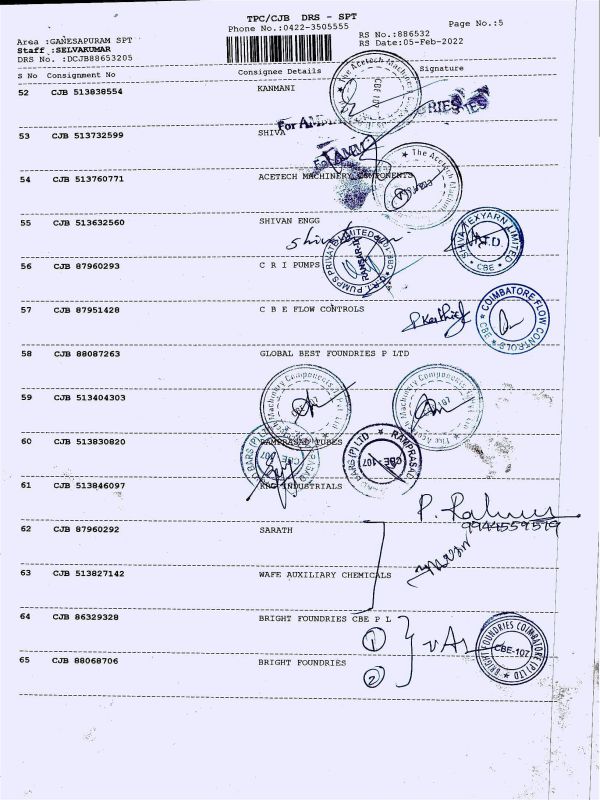 TPC/CJB DRS - SPT
Phone No.:0422-3505555
Page No.:5
Area :GANESAPURAM SPT
Staff :SELVAKUMAR
DRS No. :DCJB88653205
RS No.:886532
RS Date:05-Feb-2022
S No Consignment No Consignee Details Signature
52 CJB 513838554 KANMANI
53 CJB 513732599 SHIVA
54 CJB 513760771 ACETECH MACHINERY COMPONENTS
55 CJB 513632560 SHIVAN ENGG
56 CJB 87960293 C R I PUMPS
57 CJB 87951428 C B E FLOW CONTROLS
58 CJB 88087263 GLOBAL BEST FOUNDRIES P LTD
59 CJB 513404303
60 CJB 513830820 RAMPRASAD TUBES
61 CJB 513846097 INDUSTRIALS
9944559579
62 CJB 87960292 SARATH
63 CJB 513827142 WAFE AUXILIARY CHEMICALS
64 CJB 86329328 BRIGHT FOUNDRIES CBE P L
1
65 CJB 88068706 BRIGHT FOUNDRIES
2
SHIVA TEXYARN LIMITED
CBE
C.R.I. PUMPS PRIVATE LIMITED
COIMBATORE FLOW CONTROLS
CBE
RAMPRASAD
CBE-107
BRIGHT FOUNDRIES COIMBATORE (P) LTD
CBE-107